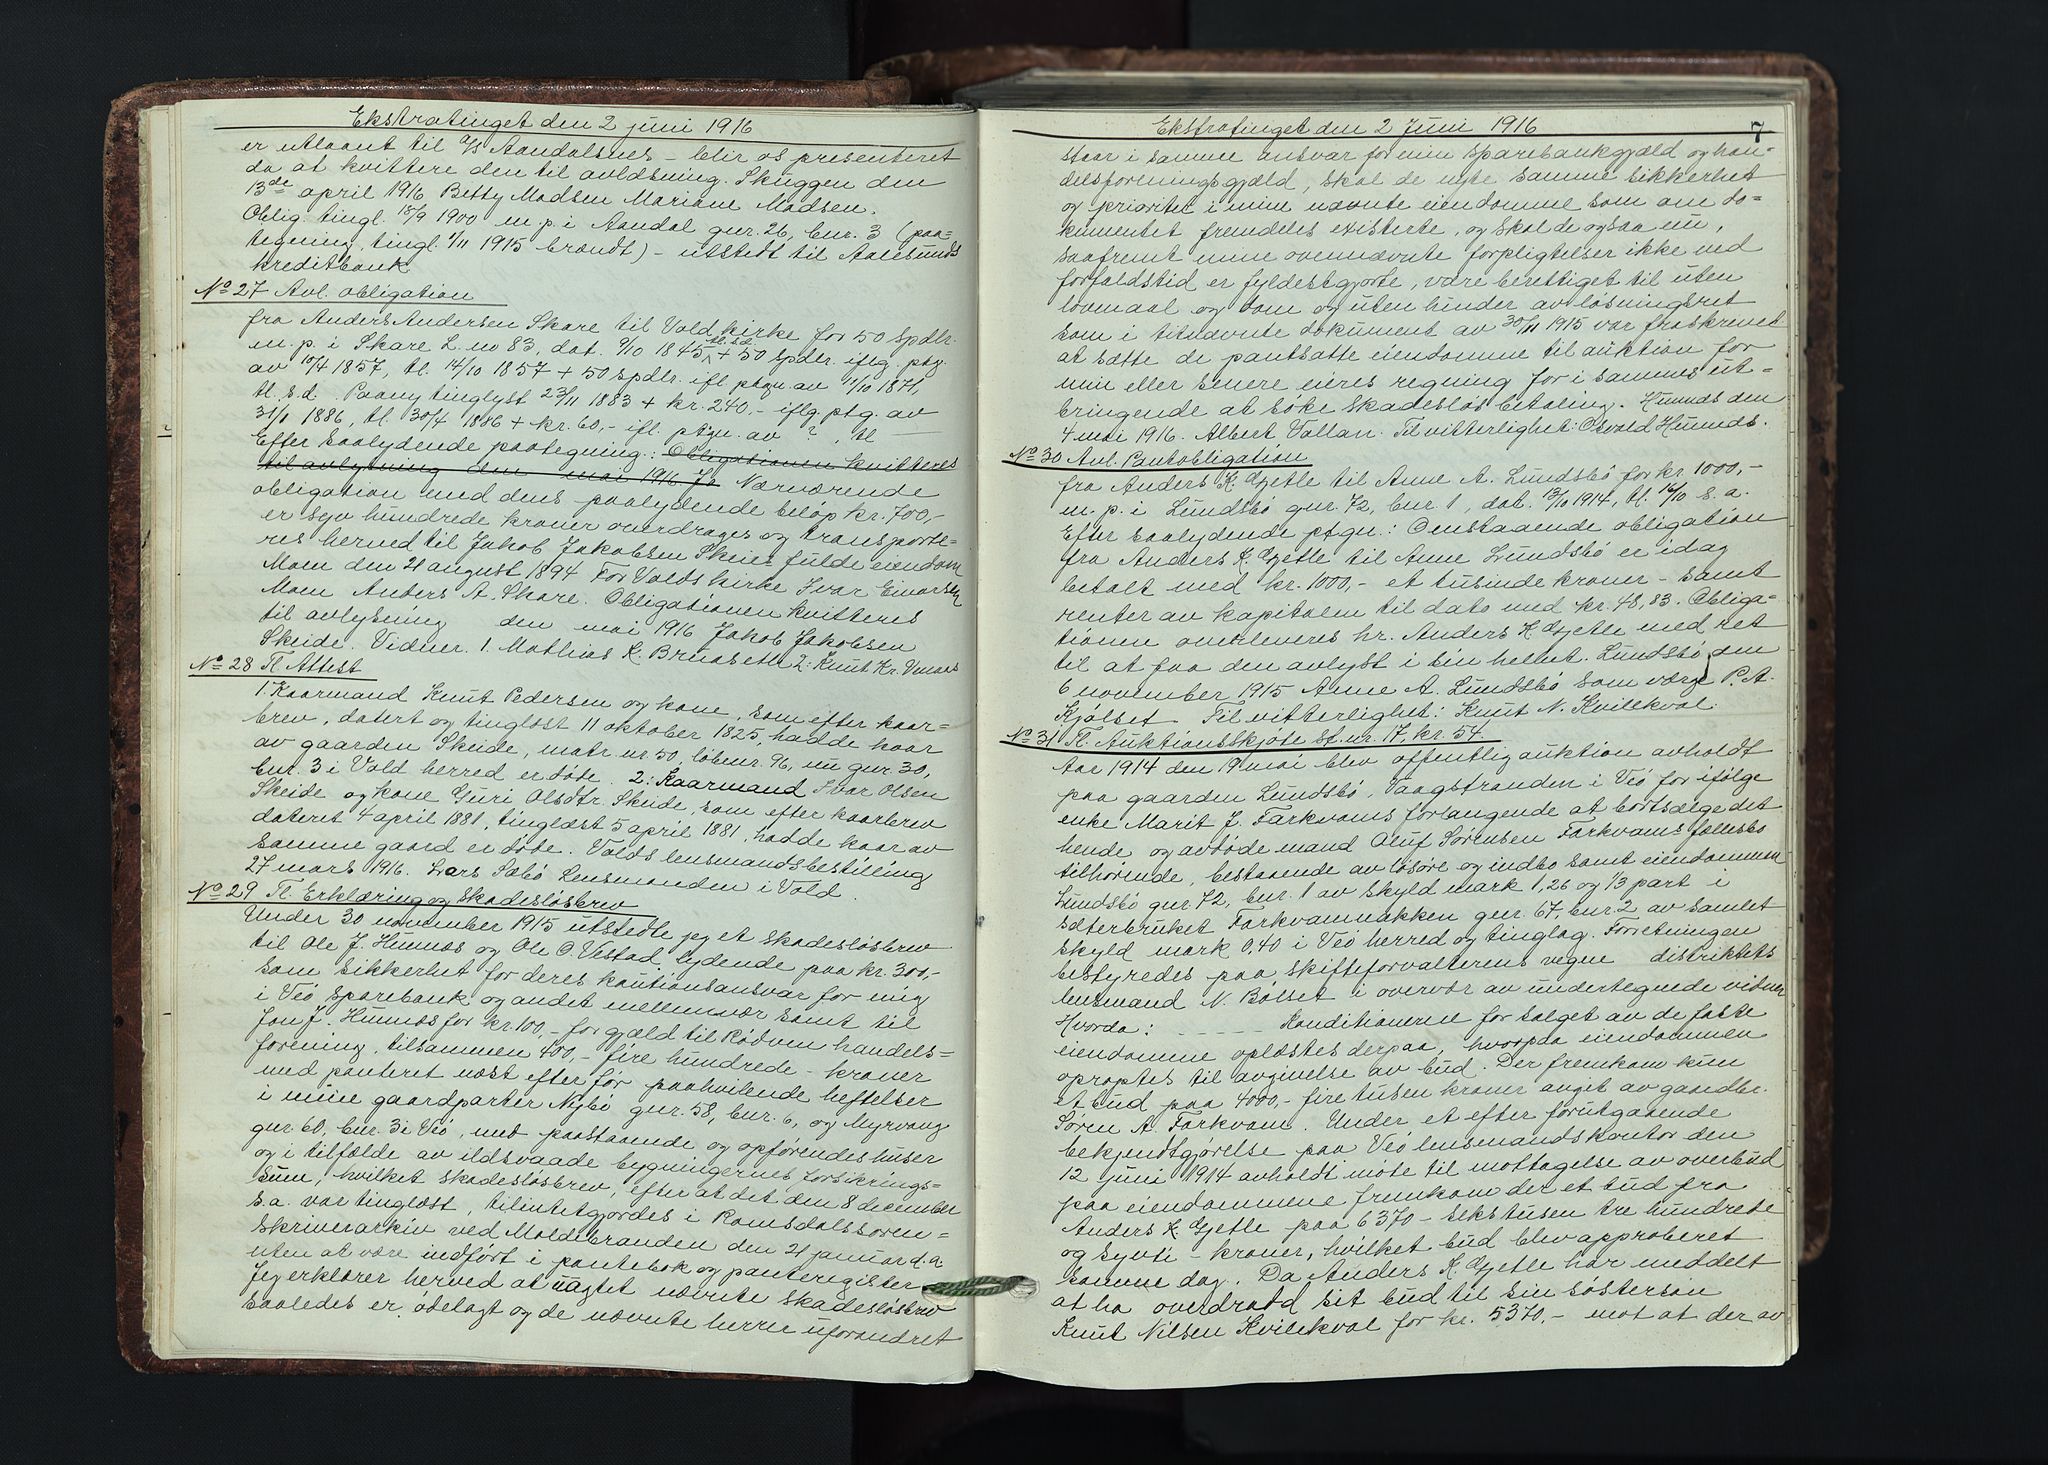 Ekstratinget den 2 juni 1916
er utlaant til A/S Aandalsnes – blir os presenteret
da at kvittere den til avløsning. Skuggen den
13de april 1916 Betty Madsen Mariane Madsen.
Oblig. tingl. 15/9 1900 m. p. i Aandal gnr. 26, bnr. 3 (paa-
tegning tingl. 1/11 1915 brændt) – utstedt til Aalesunds
kreditbank
No 27 Avl. obligation
fra Anders Andersen Skare til Vold kirke for 50 spdlr.
m. p. i Skare L. no 83, dat. 9/10 1845 tl. s.d. + 50 spdlr. iflg. ptg.
av 10/4 1857, tl. 14/10 1857 + 50 spdlr. ifl ptgn. av 11/10 1871,
tl. s. d. Paany tinglyst 23/11 1883 + kr. 240,- iflg. ptg. av
31/1 1886, tl. 30/4 1886 + kr. 60,- ifl. ptgn. av ? , tl
Efter saalydende paategning: Obligationen kvitteres
til avlysning den mai 1916 Ja Nærværende
obligation med dens paalydende beløp kr. 700,-
er syv hundrede kroner overdrages og transporte-
res herved til Jakob Jakobsen Skeides fulde eiendom
Moen den 21 august 1894 For Volds kirke Ivar Einarsen
Moen Anders A. Skare. Obligationen kvitteres
til avlysning den mai 1916 Jakob Jakobsen
Skeide. Vidner. 1. Mathias K. Bruaseth 2: Knut Kr. Venaas
No 28 Tl Attest
1. Kaarmand Knut Pedersen og kone, som efter kaar-
brev, datert og tinglæst 11 oktober 1825, hadde kaar
av gaarden Skeide, matr. nr. 50, løbenr. 96, nu gnr. 30,
bnr. 3 i Vold herred er døde. 2: Kaarmand Ivar Olsen
Skeide og kone Guri Olsdtr. Skeide, som efter kaarbrev
dateret 4 april 1881, tinglæst 5 april 1881, hadde kaar av
samme gaard er døde. Volds lensmandsbestilling
27 mars 1916. Lars Sæbø Lensmanden i Vold.
No 29 Tl. Erklæring og skadesløsbrev
Under 30 november 1915 utstedte jeg et skadesløsbrev
til Ole J. Hunnes og Ole O. Vestad lydende paa kr. 300,-
som sikkerhet for deres kautionsansvar for mig
i Veø sparebank og andet mellemvær samt til
Jon J. Hunnes for kr. 100,- for gjæld til Rødven handels-
forening, tilsammen 400,- fire hundrede - kroner
med panteret næst efter før paahvilende heftelser
i mine gaardparter Nybø gnr. 58, bnr. 6, og Myrvang
gnr. 60, bnr. 3 i Veø, med paastaaende og opførendes huser
og i tilfælde av ildsvaade bygningernes forsikrings-
sum, hvilket skadesløsbrev, efter at det den 8 december
s. a. var tinglæst, tilintetgjordes i Romsdals soren-
skriverarkiv ved Moldebranden den 21 januar d. a.
uten at være indført i pantebok og panteregister
Jeg erklærer herved at uagtet nævnte skadesløsbrev
saaledes er ødelagt og de nævnte herrer uforandret
Ekstratinget den 2 Juni 1916
7
staar i samme ansvar for min sparebankgjæld og han-
delsforeningsgjæld, skal de nyte samme sikkerhet
og prioritet i mine nævnte eiendomme som om do-
kumentet fremdeles existerte, og skal de ogsaa nu,
saafremt mine ovennævnte forpligtelser ikke ved
forfaldstid er fyldestgjorte, være berettiget til uten
lovmaal og dom og uten hinder av løsningsret
som i titnævnte dokument av 30/11 1915 var fraskrevet
at sætte de pantsatte eiendomme til auktion for
min eller senere eieres regning for i sammes ut-
bringende at søke skadesløs betaling. Hunnes den
4 mai 1916. Albert Vollan. Til vitterlighet: Osvald Hunnes.
No 30 Avl. Pantobligation
fra Anders K. Gjetle til Anne A. Lundsbø for kr. 1000,-
m. p. i Lundsbø gnr. 72, bnr 1, dat. 13/10 1914, tl. 16/10 s. a.
Efter saalydende ptgn.: Omstaaende obligation
fra Anders K. Gjetle til Anne Lundsbø er idag
betalt med kr. 1000,- et tusinde kroner - samt
renter av kapitalen til dato med kr. 48,83. Obliga-
tionen overleveres hr. Anders K Gjetle med ret
til at faa den avlyst i sin helhet. Lundsbø den
6 november 1915 Anne A. Lundsbø som værge P. A.
Kjølset Til vitterlighet: Knut N. Kvilekval.
No 31 Tl. Auktionsskjøte st. nr. 17, kr. 54.
Aar 1914 den 19 mai blev offentlig auktion avholdt
paa gaarden Lundsbø, Vaagstranden i Veø for ifølge
enke Marit J. Farkvams forlangende at bortsælge det
hende og avdøde mand Oluf Sørensen Farkvams fællesbo
tilhørende, bestaaende av løsøre og indbo samt eiendommen
Lundsbø gnr. 72, bnr. 1 av skyld mark 1,26 og 1/3 part i
sæterbruket Farkvamnakken gnr. 67, bnr. 2 av samlet
skyld mark 0,40 i Veø herred og tinglag. Forretningen
bestyredes paa skifteforvalterens vegne distriktets
lensmand N. Bolset i overvær av undertegnede vidner
Hvorda: - - - - - Konditionerne for salget av de faste
eiendomme oplæstes derpaa, hvorpaa eiendommen
opraptes til avgivelse av bud. Der fremkom kun
et bud paa 4000,- fire tusen kroner avgit av gaardbr.
Søren A. Farkvam. Under et efter forutgaaende
bekjendtgjørelse paa Veø lensmandskontor den
12 juni 1914 avholdt møte til mottagelse av overbud
paa eiendommene fremkom der et bud fra
Anders K. Gjetle paa 6370 - sekstusen tre hundrete
og sytti - kroner, hvilket bud blev approberet
samme dag. Da Anders K Gjetle har meddelt
at ha overdratt sit bud til sin søstersøn
Knut Nilsen Kvilekval for kr. 5370,- mot at der av